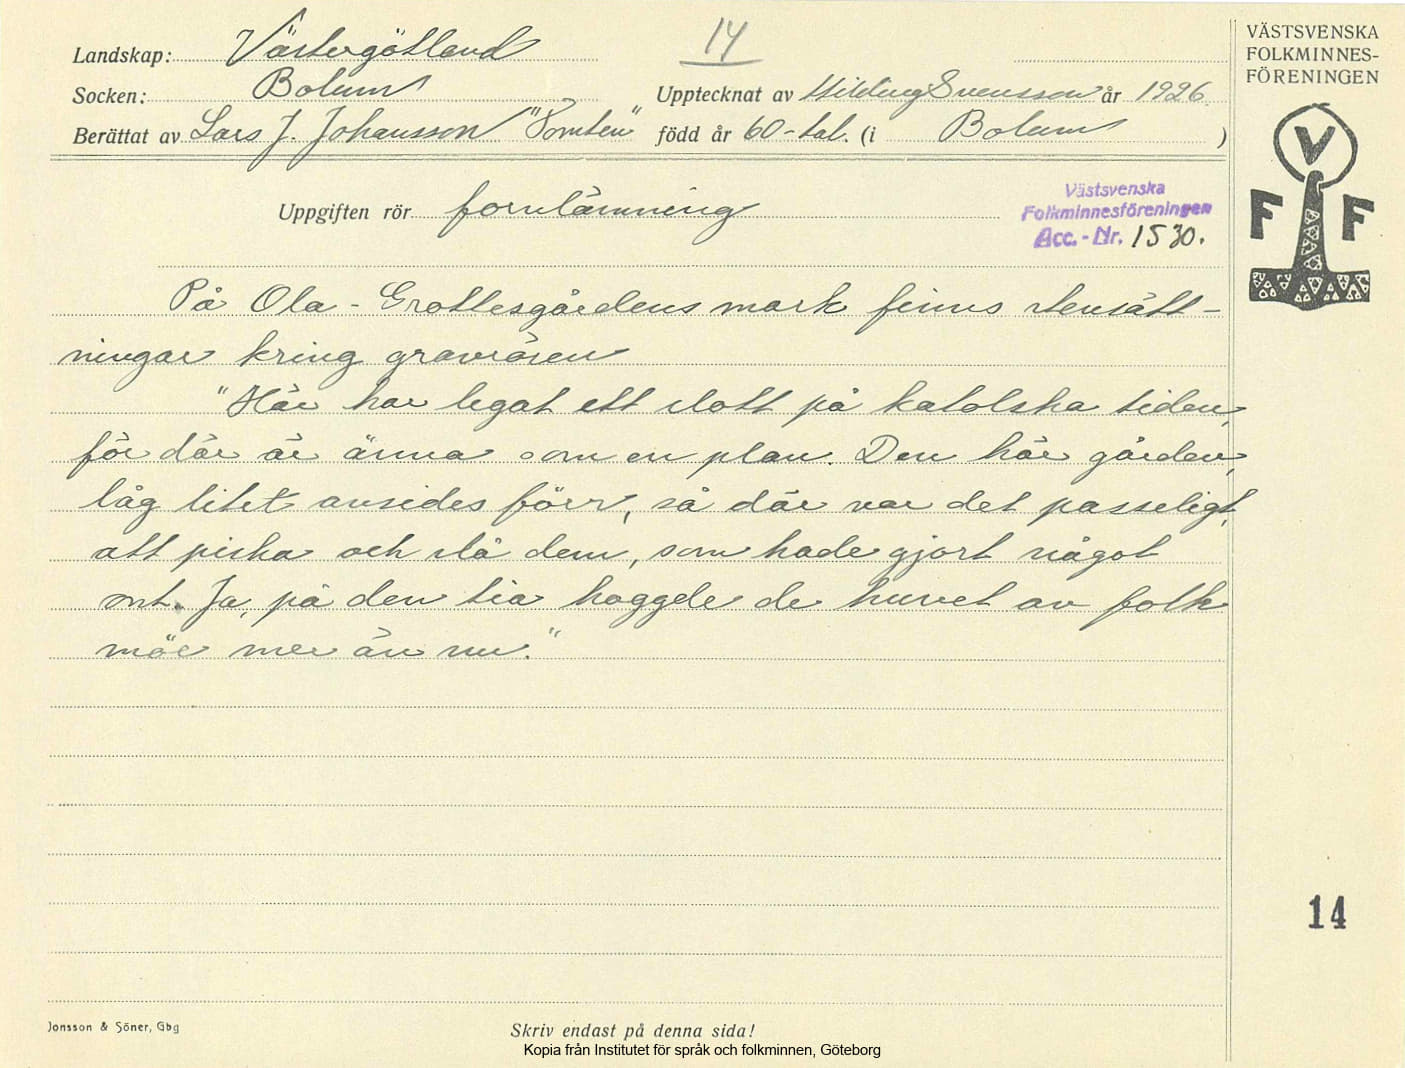 Landskap: Västergötland
14
VÄSTSVENSKA
FOLKMINNES-
FÖRENINGEN
Socken: Bolum
Upptecknat av Hilding Svensson år 1926.
Berättat av Lars J. Johansson "Tomten" född år 60-tal. (i Bolum )
V
F F
Uppgiften rör fornlämning
Västsvenska
Folkminnesföreningen
Acc.-Nr. 1530.
På Ola-Grottesgårdens mark finns stensätt-
ningar kring gravrösen
"Här har legat ett slott på katolska tiden,
för där är änna som en plan. Den här gården
låg litet avsides förr, så där var det passeligt
att piska och slå dem, som hade gjort något
ont. Ja, på den tia hoggde de huvet av folk
möe mer än nu."
14
Jonsson & Söner, Gbg
Skriv endast på denna sida!
Kopia från Institutet för språk och folkminnen, Göteborg